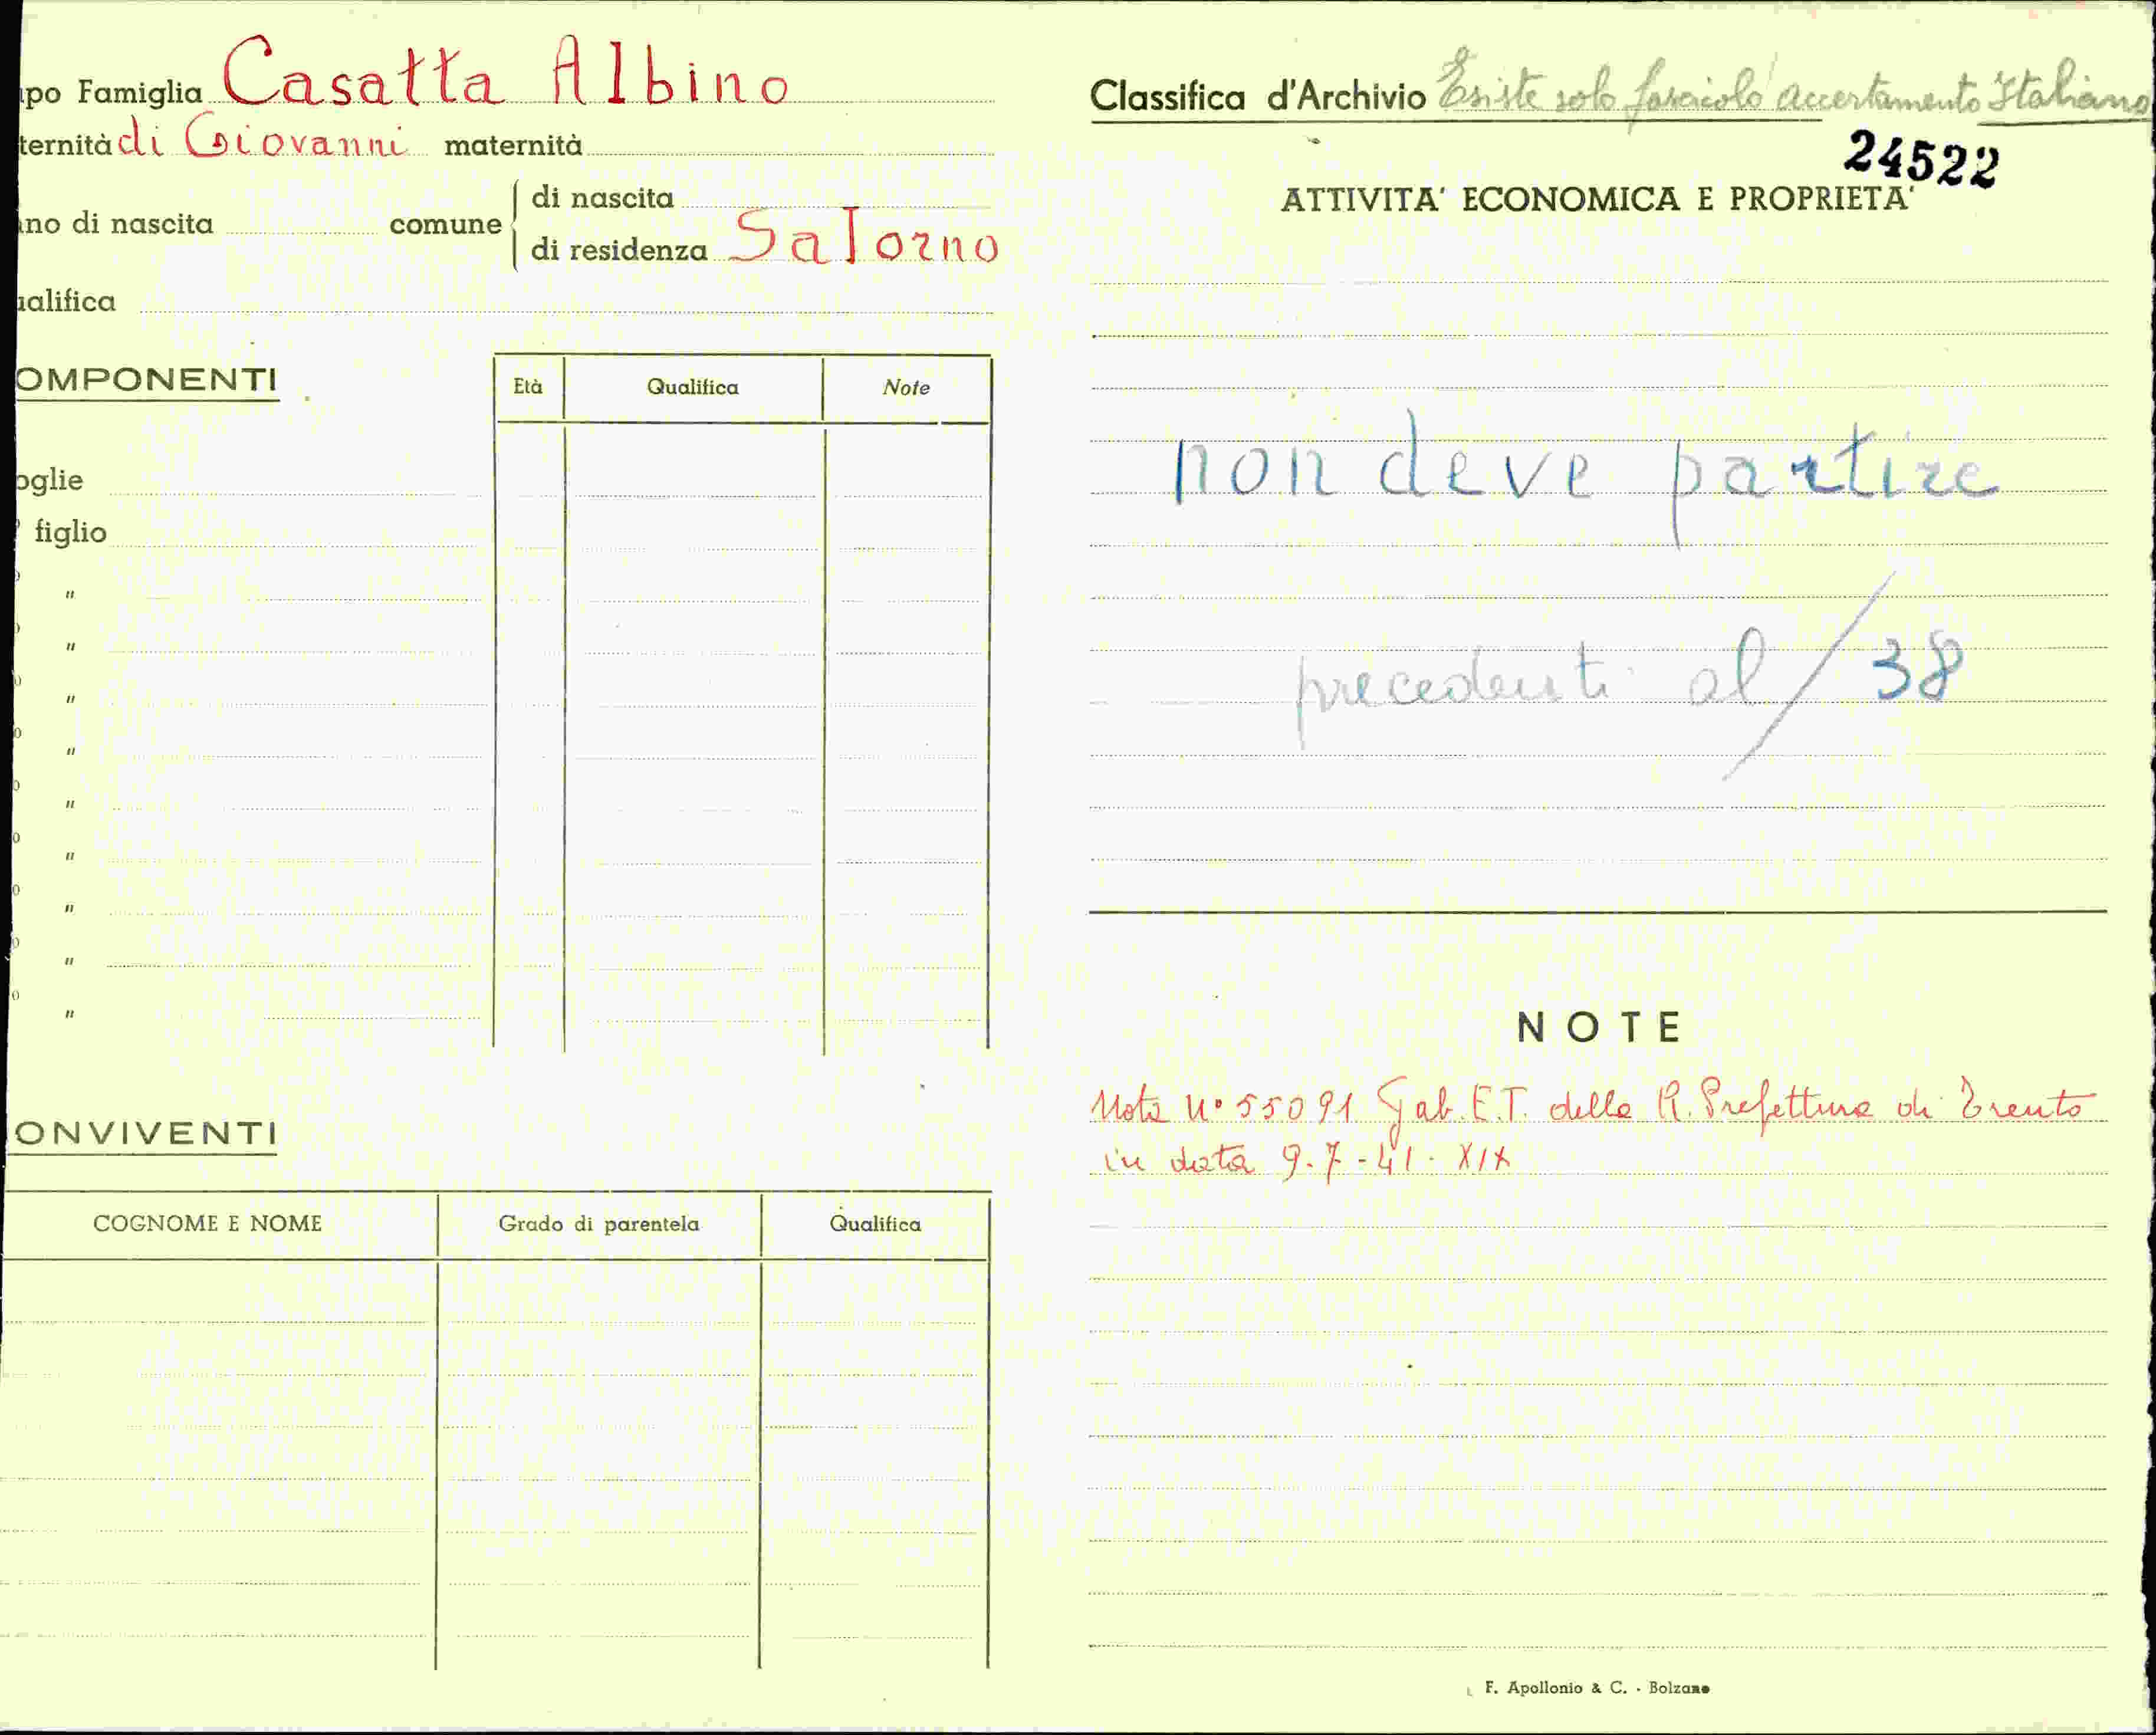 po Famiglia Casatta Albino
ternità di Giovanni maternità
no di nascita comune di nascita
di residenza Salorno
alifica
OMPONENTI
Età Qualifica Note
oglie
figlio
"
"
"
"
"
"
"
"
"
ONVIVENTI
COGNOME E NOME Grado di parentela Qualifica
Classifica d'Archivio Esiste solo fascicolo accertamento Italiano
24522
ATTIVITA' ECONOMICA E PROPRIETA'
non deve partire
precedenti al / 38
NOTE
Nota N° 55091 Gab. E.T. della R. Prefettura di Trento
in data 9-7-41-XIX
F. Apollonio & C. - Bolzano